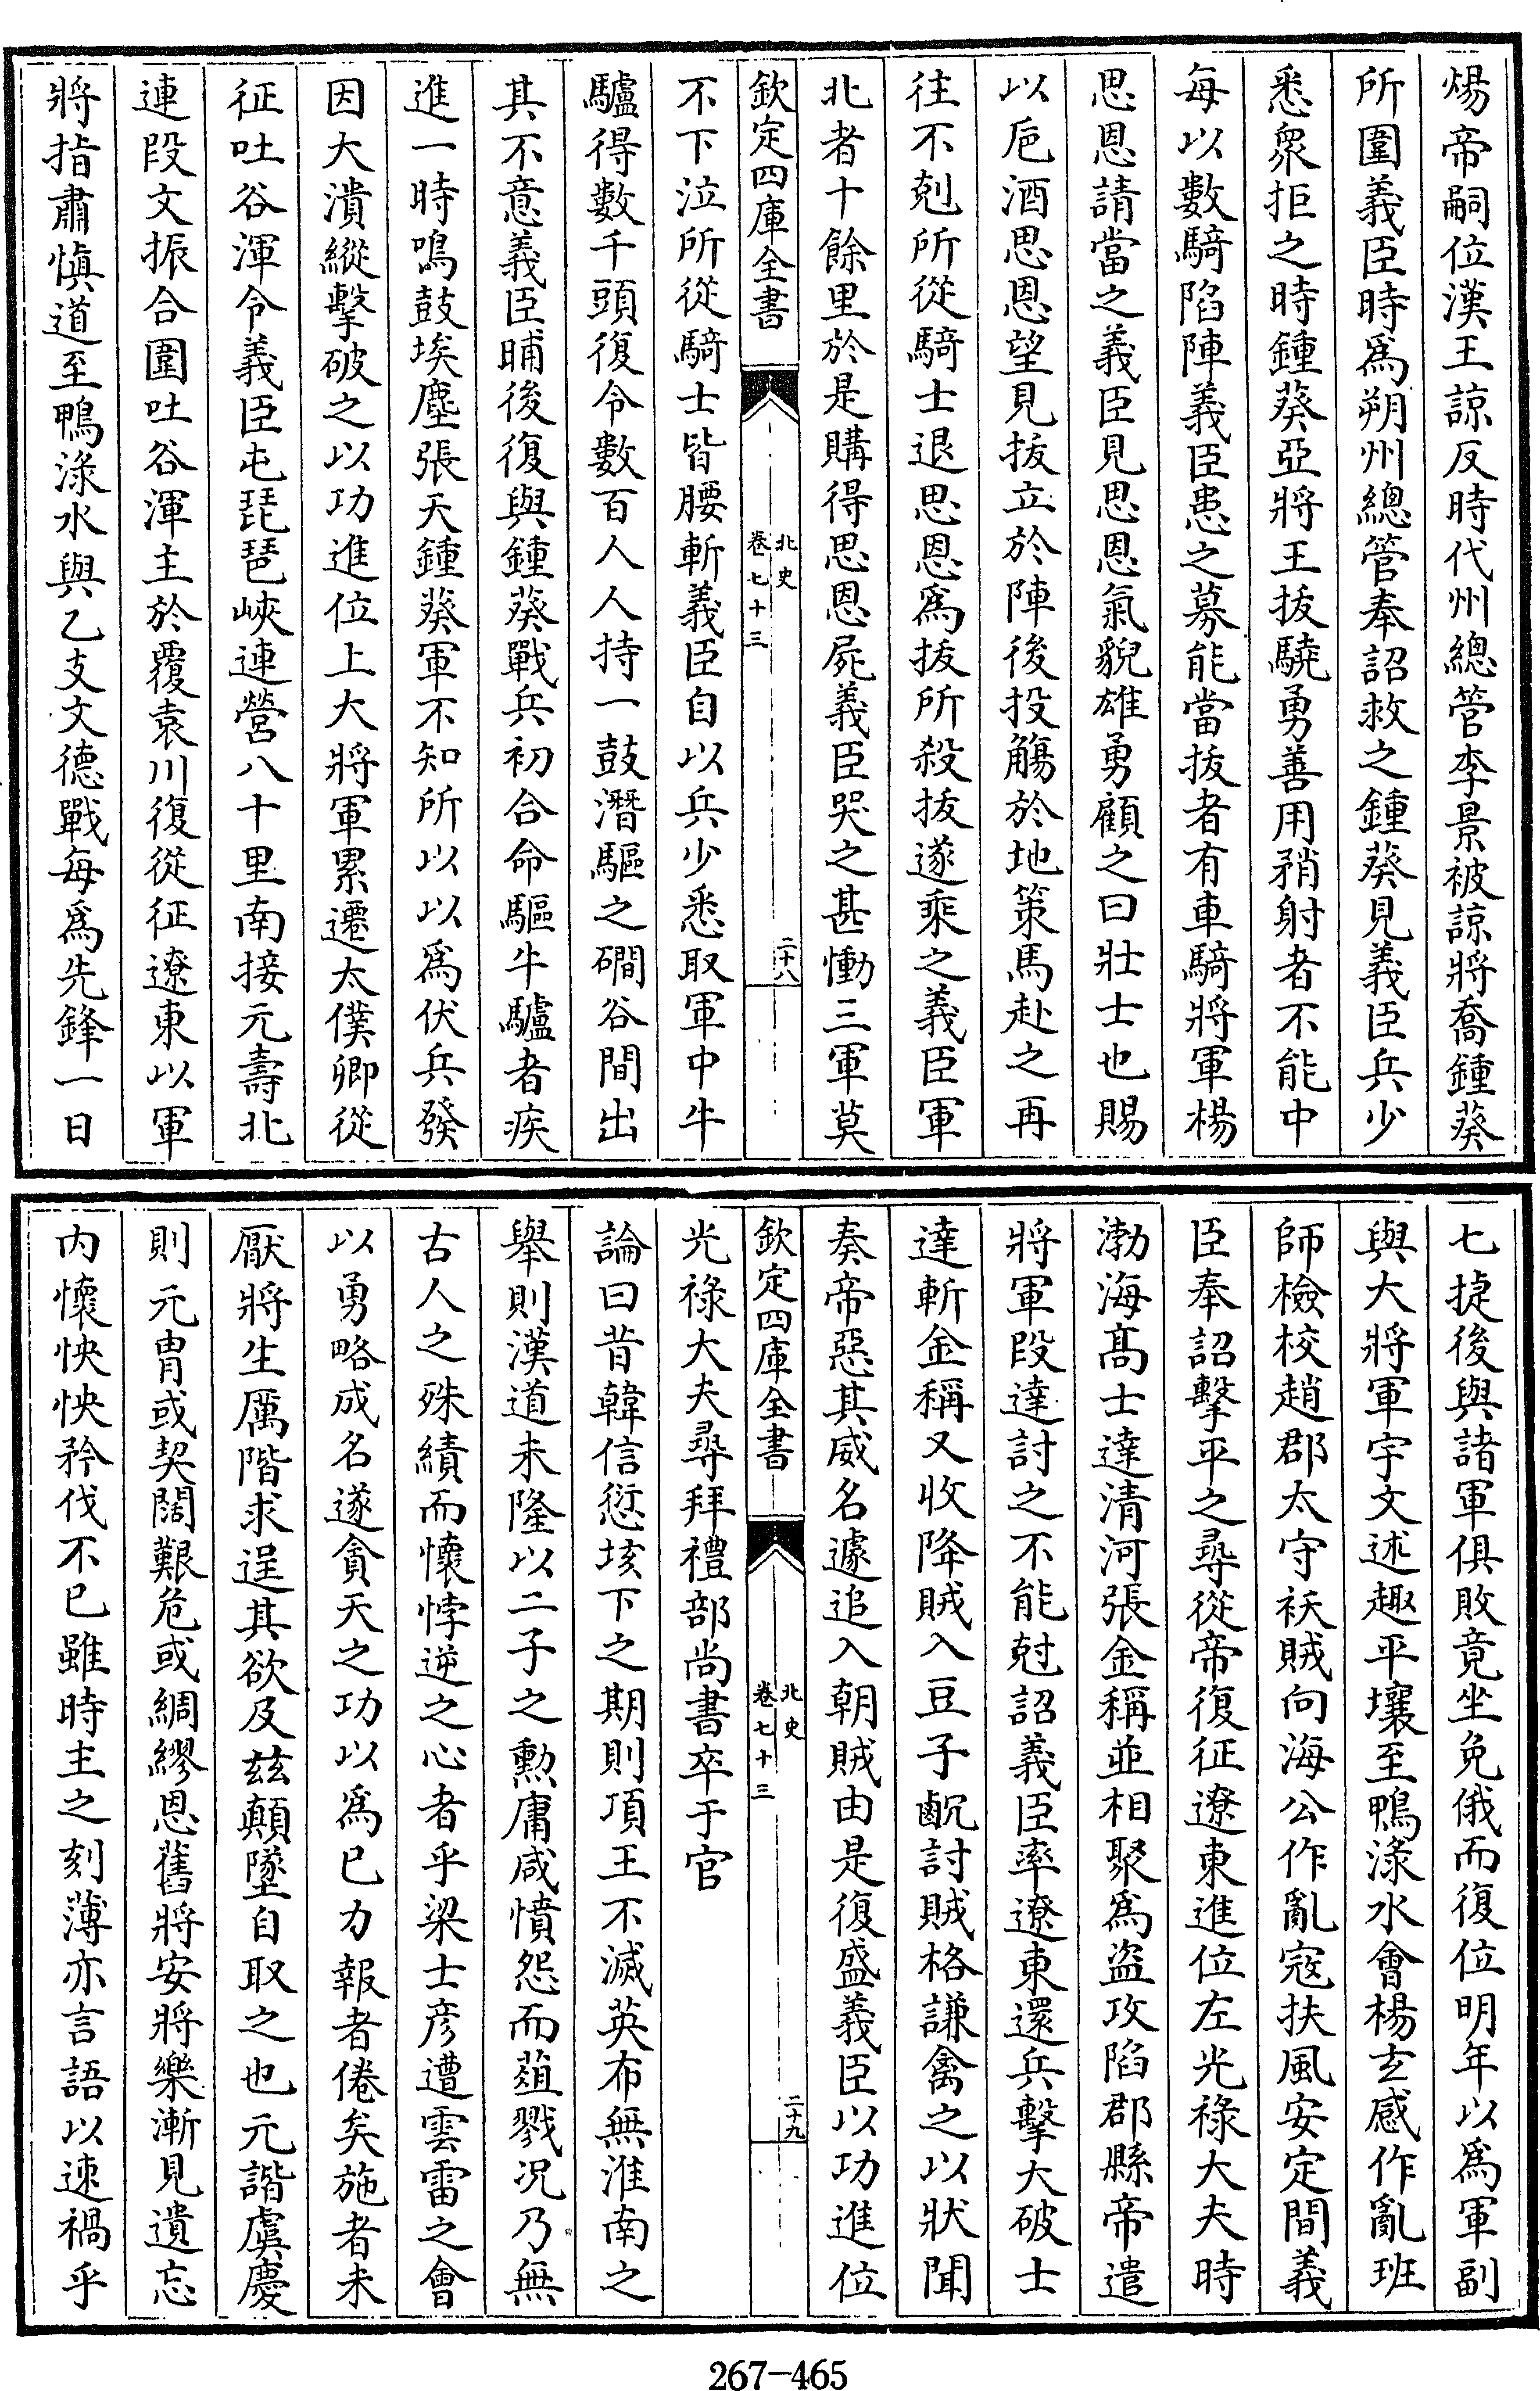 煬帝嗣位漢王諒反時代州總管李景被諒將喬鍾葵
所圍義臣時爲朔州總管奉詔救之鍾葵見義臣兵少
悉衆拒之時鍾葵亞將王拔驍勇善用矟射者不能中
每以數騎陷陣義臣患之募能當拔者有車騎將軍楊
思恩請當之義臣見思恩氣貌雄勇顧之曰壯士也賜
以巵酒思恩望見拔立於陣後投觴於地策馬赴之再
往不剋所從騎士退思恩爲拔所殺拔遂乘之義臣軍
北者十餘里於是購得思恩屍義臣哭之甚慟三軍莫
欽定四庫全書
北史
卷七十三
二十八
不下泣所從騎士皆腰斬義臣自以兵少悉取軍中牛
驢得數千頭復令數百人人持一鼓潛驅之磵谷間出
其不意義臣晡後復與鍾葵戰兵初合命驅牛驢者疾
進一時鳴鼓埃塵張天鍾葵軍不知所以以爲伏兵發
因大潰縱擊破之以功進位上大將軍累遷太僕卿從
征吐谷渾令義臣屯琵琶峽連營八十里南接元壽北
連段文振合圍吐谷渾主於覆袁川復從征遼東以軍
將指肅愼道至鴨淥水與乙支文德戰每爲先鋒一日
七捷後與諸軍俱敗竟坐免俄而復位明年以爲軍副
與大將軍宇文述趣平壤至鴨淥水會楊玄感作亂班
師檢校趙郡太守祅賊向海公作亂寇扶風安定間義
臣奉詔擊平之尋從帝復征遼東進位左光祿大夫時
渤海髙士達清河張金稱並相聚爲盜攻陷郡縣帝遣
將軍段達討之不能尅詔義臣率遼東還兵擊大破士
達斬金稱又收降賊入豆子䴚討賊格謙禽之以狀聞
奏帝惡其威名遽追入朝賊由是復盛義臣以功進位
欽定四庫全書
北史
卷七十三
二十九
光祿大夫尋拜禮部尚書卒于官
論曰昔韓信愆垓下之期則項王不滅英布無淮南之
舉則漢道未隆以二子之勳庸咸憤怨而葅戮况乃無
古人之殊績而懷悖逆之心者乎梁士彦遭雲雷之會
以勇略成名遂貪天之功以爲已力報者倦矣施者未
厭將生厲階求逞其欲及兹顛墜自取之也元諧虞慶
則元胄或契闊艱危或綢繆恩舊將安將樂漸見遺忘
内懷怏怏矜伐不已雖時主之刻薄亦言語以速禍乎
267-465